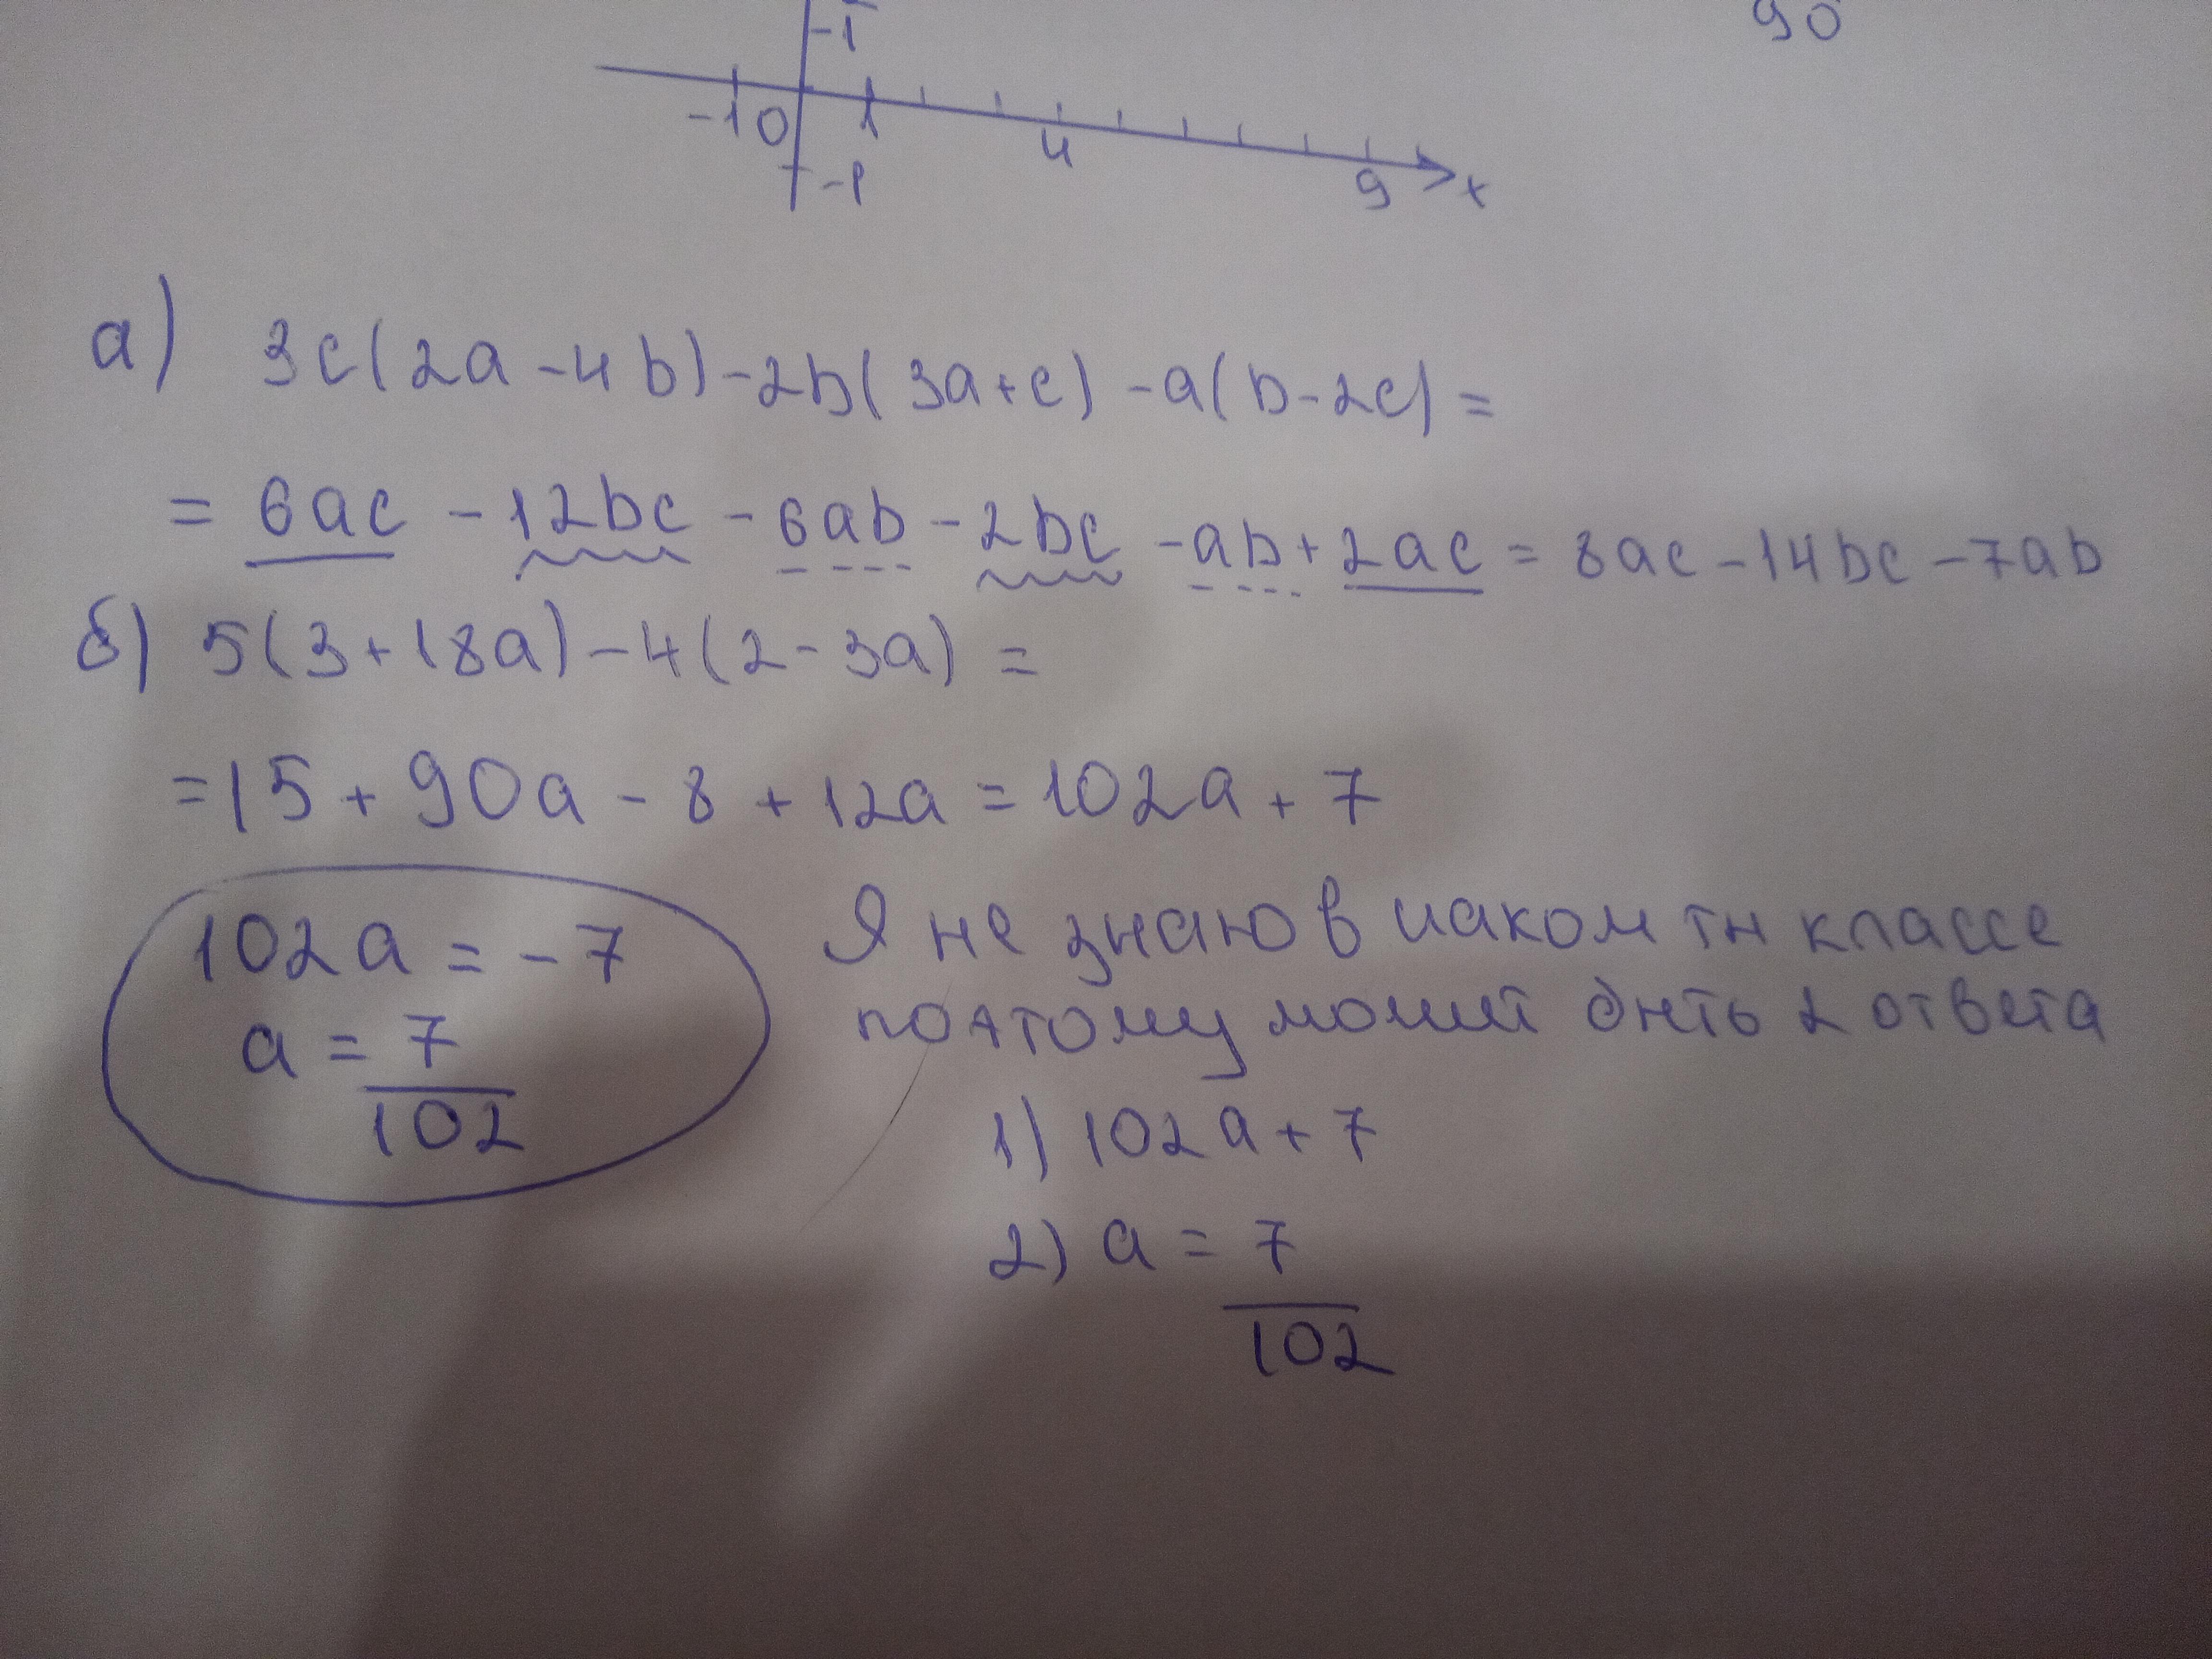 90
-1
-1 0 1 4 9 x
-1
а) 3c(2a-4b)-2b(3a+c)-a(b-2c)=
= 6ac - 12bc - 6ab - 2bc - ab + 2ac = 8ac - 14bc - 7ab
б) 5(3+18a)-4(2-3a)=
=15+90a-8+12a=102a+7
102a=-7
a=7/102
Я не знаю в какой ты классе
поэтому может быть 2 ответа
1) 102a+7
2) a=7/102